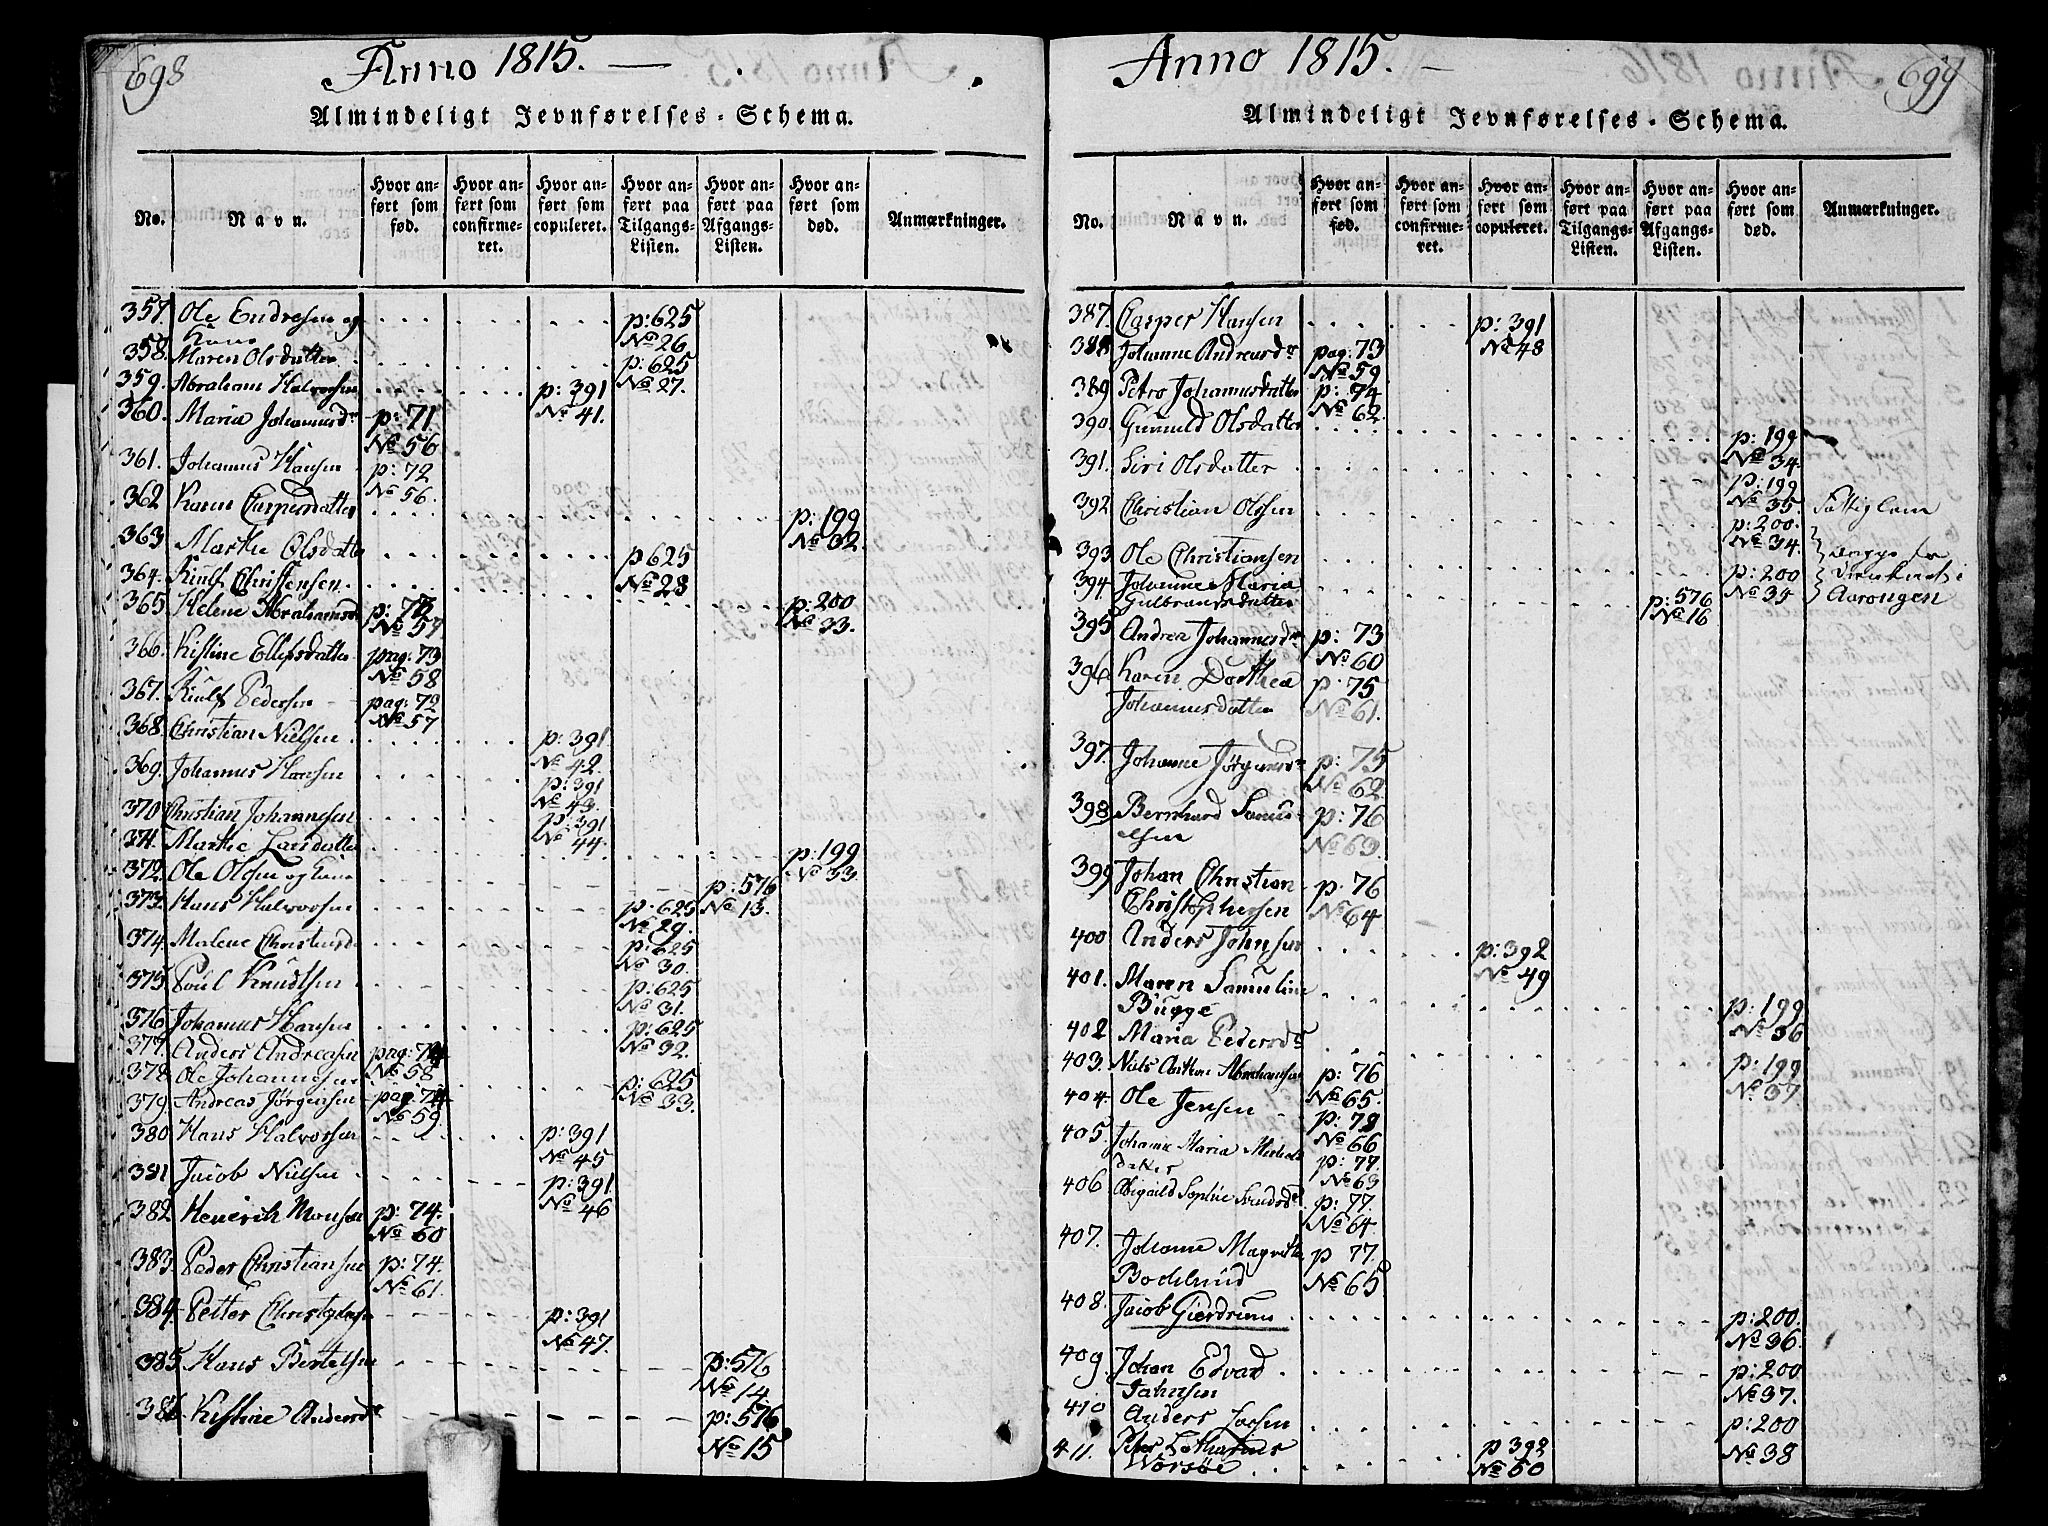 698
Anno 1815.
Almindeligt Jevnførelses-Schema.
No. Navn. Hvor anført som fød. Hvor anført som confirmeret. Hvor anført som copuleret. Hvor anført paa Tilgangs-Listen. Hvor anført paa Afgangs-Listen. Hvor anført som død. Anmærkninger.
357. Ole Endresen og Kone p: 625 No 26
358. Maren Olsdatter p: 625 No 27.
359. Abraham Halvorsen p: 391 No 41.
360. Maria Johannesdr p: 71 No 56
361. Johannes Hansen p: 72 No 56.
362 Karen Caspersdatter p: 199 No 32.
363 Marthe Olsdatter p 625 No 28
364. Christensen p: 200 No 33.
365. Helene Abrahamsd No 57
366. Kistine Ellefsdatter pag: 73 No 58
367. Pedersen pag: 72 No 57
368. Christian Nielsen p: 391 No 42.
369. Johannes Hansen p: 391 No 43.
370 Christian Johannesen p: 391 No 44.
371. Marthe Larsdatter p: 199 No 33
372. Ole Olsen og p: 576 No 13.
373. Hans Halvorsen p: 625 No 29.
374. Malene p: 625 No 30.
375. Poul Knudtsen p: 625 No 31.
376. Johannes Hansen p: 625 No 32.
377. Anders Andreasen pag: 74 No 58
378. Ole Johannesen p: 625 No 33.
379. Andreas Jørgensen pag: 74 No 59.
380. Hans Halvorsen p: 391 No 45
381 Jacob Nielsen p: 391 No 46
382. Henrich Monsen p: 74. No 60
383. Peder Christiansen p: 74. No 61.
384. Petter p: 391 No 47.
385. Hans Bertelsen p: 576 No 14.
386. Kistine Andersdr p: 576 No 15
Anno 1815.
699
Almindeligt Jevnførelses-Schema.
No. Navn. Hvor anført som fød. Hvor anført som confirmeret. Hvor anført som copuleret. Hvor anført paa Tilgangs-Listen. Hvor anført paa Afgangs-Listen. Hvor anført som død. Anmærkninger.
387. Casper Hansen p: 391 No 48
388 Johanne Andreasdr pag: 73 No 59
389 Petro Johannesdatter p: 74 No 62.
390. Gunnild Olsdatter p: 199 No 34.
391. Siri Olsdatter p: 199 No 35.
392 Christian Olsen p: 200. No 34.
393. Ole Christiansen p: 200 No 35
394 Johanne Maria Gulbrandsdatter p: 576 No 16
395 Andrea Johannesdr p: 73 No 60
396 Karen Dorthea Johannesdatter p: 75 No 61.
397. Johanne Jørgensdr p: 75 No 62.
398. Bernhard Samuelsen p: 76 No 63.
399 Johan Christian Christophersen p: 76 No 64
400 Anders Johnsen p: 392 No 49
401. Maren Bugge p: 199 No 36
402 Maria Pedersdr p: 199 No 37
403. Niels Abrahamsen p: 76 No 65.
404. Ole Jensen p: 78 No 66
405. Johanne Maria datter p: 77. No 63
406 Sophie p: 77. No 64.
407. Johanne p 77. No 65
408. Jacob Gierdrum p: 200. No 36
409. Johan Edvard Jahnsen p: 200 No 37.
410 Anders p: 200 No 38
411. Worsøe p 392 No 50